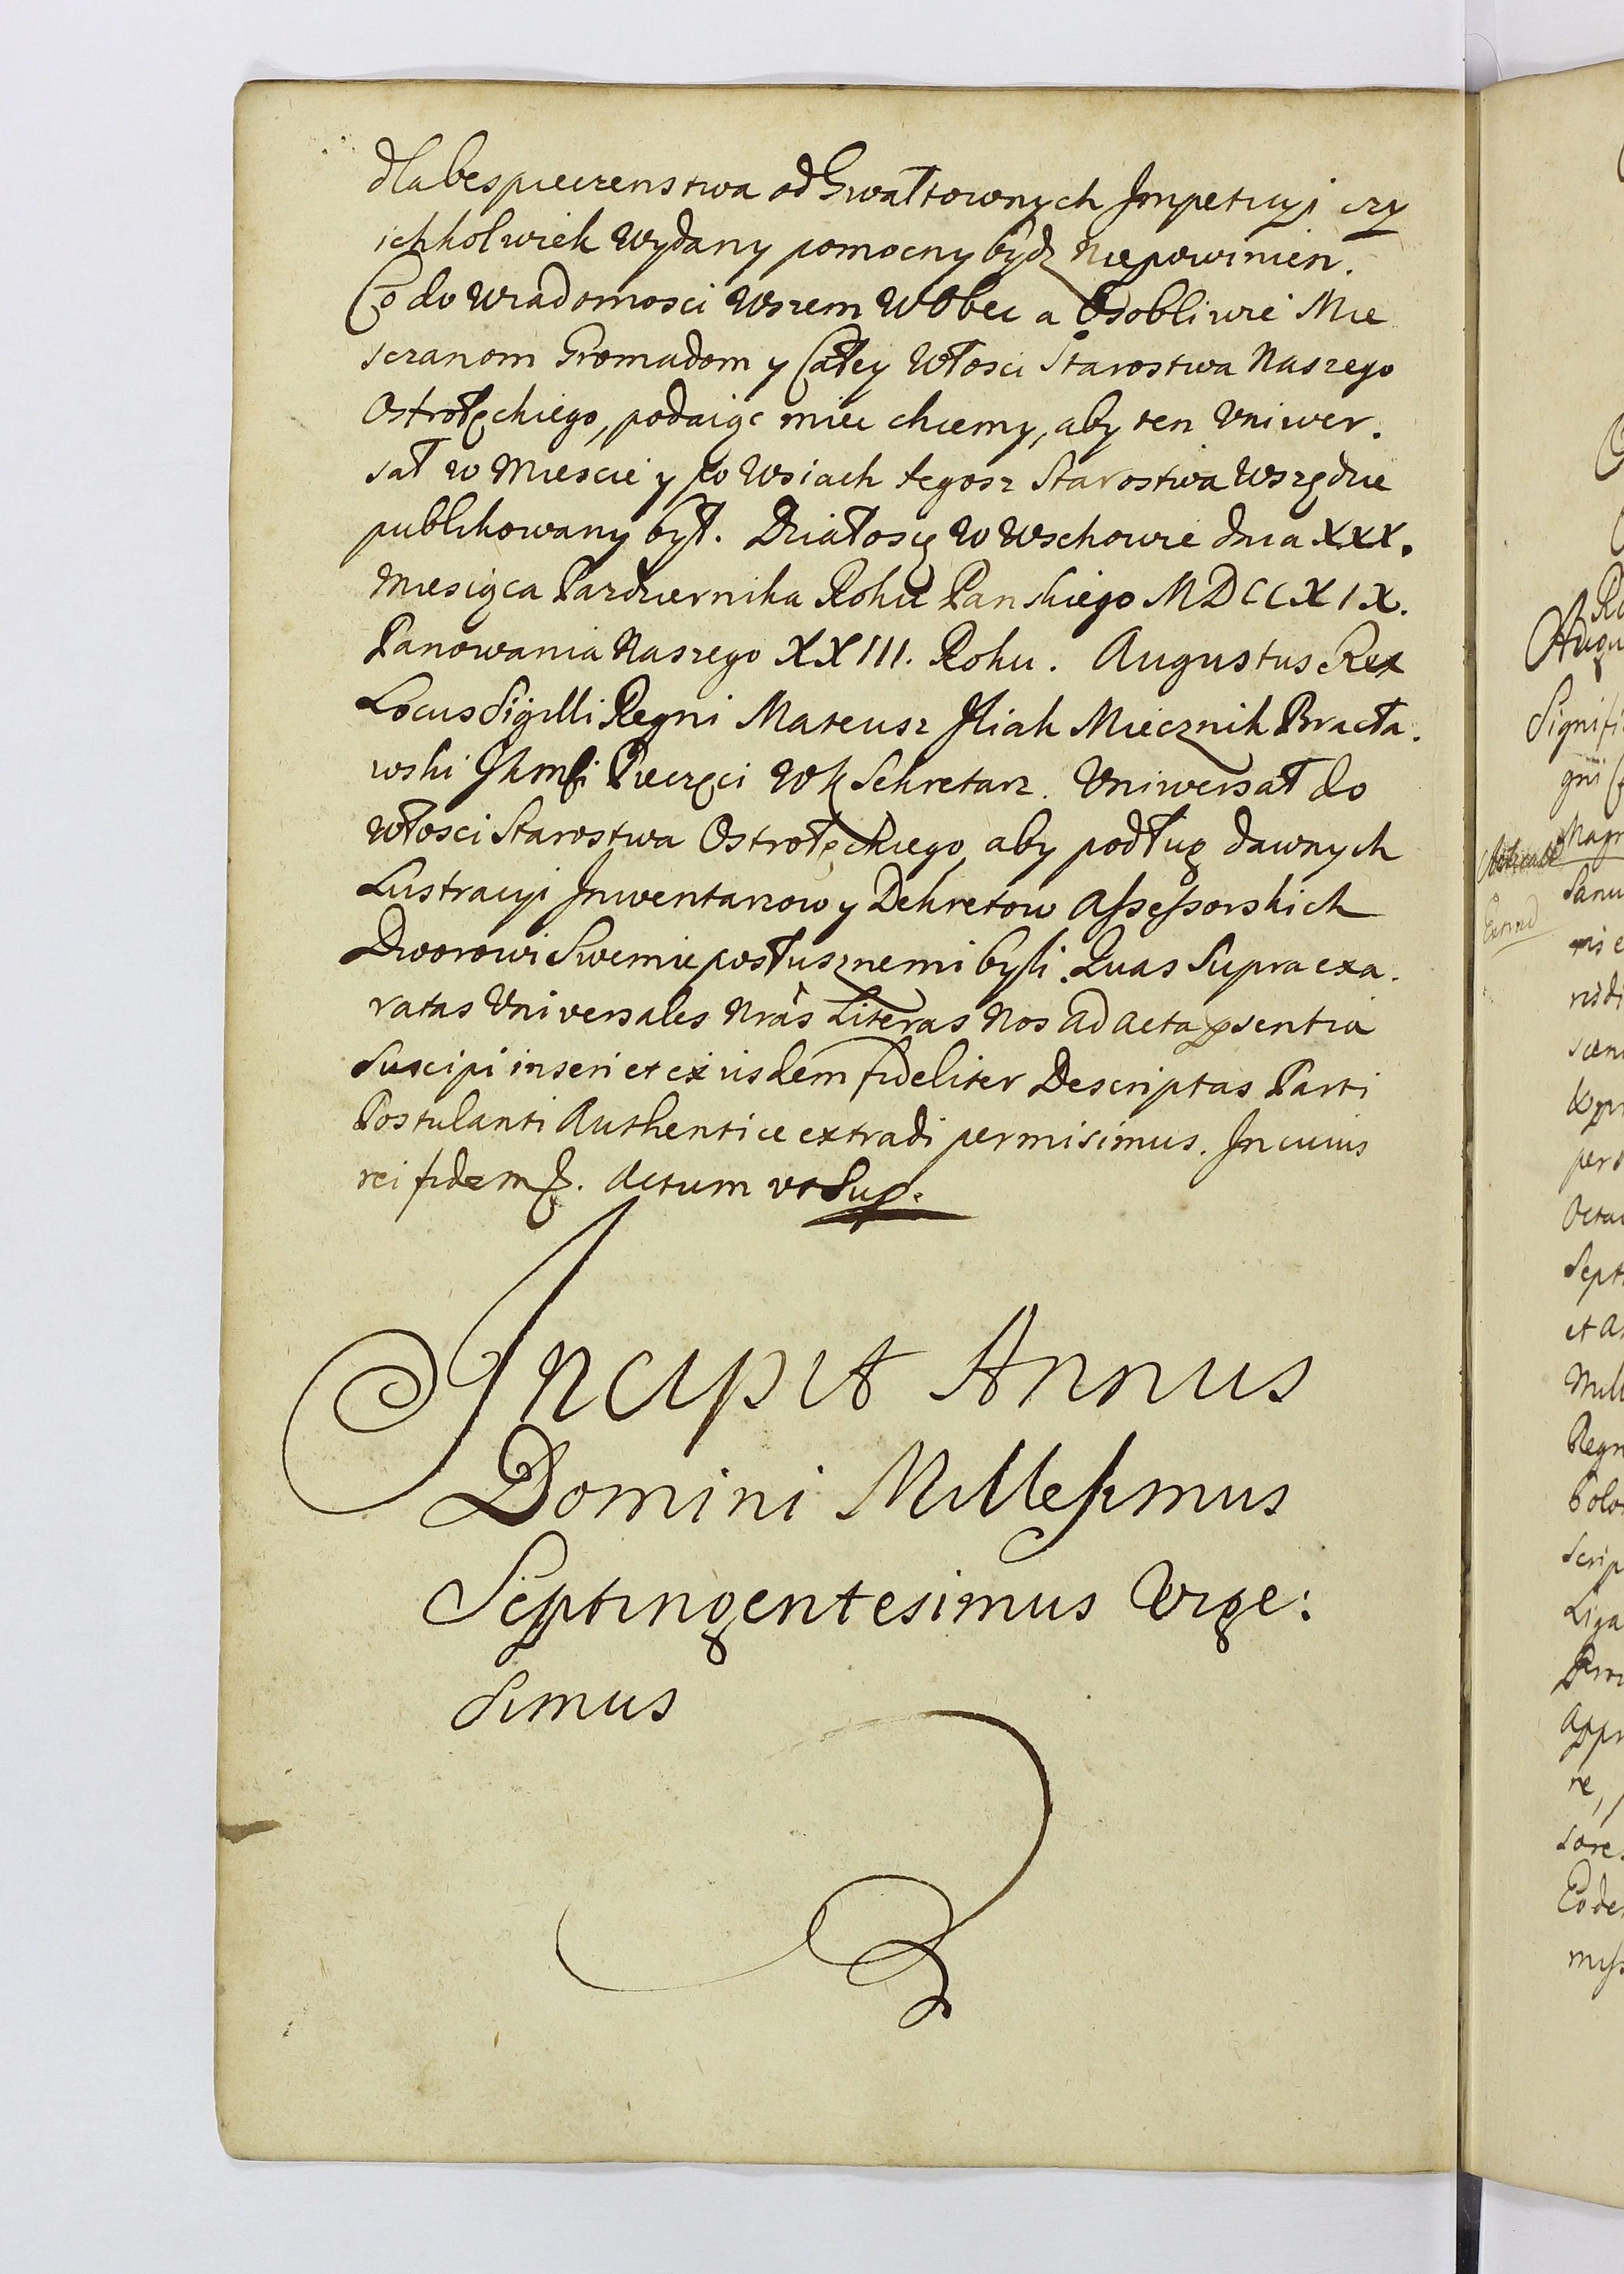 dla bespieczenstwa od Gwałtownych Impeticyi czy
ichkolwiek Wydany pomocny bydz niepowinien.
Co do Wiadomosci Wszem Wobec a Osobliwie Mie
sczanom Gromadom y Całey Włosci Starostwa Naszego
Ostrołęckiego, podaiąc miec chcemy, aby ten Uniwer.
sał w Miescie y po Wsiach tegosz Starostwa Wszędzie
publikowany był. Działosię W Wschowie dnia XXX.
Miesiąca Pazdziernika Roku Panskiego MDCCXIX.
Panowania Naszego XXIII. Roku. Augustus Rex
Locus Sigilli Regni Mateusz Iliak Miecznik Bracła.
wski JKmsci Pieczęci WK Sekretarz. Uniwersał do
Włosci Starostwa Ostrołęckiego, aby podług dawnych
Lustracyi Inwentarzow y Dekretow Assessorskich
Dworowi Swemu posłusznemi byli. Quas Supra exa.
ratas Universales Nras Literas Nos ad Acta psentia
Suscipi inseri et ex iisdem fideliter Descriptas Parti
Postulanti Authentice extradi permisimus. In cuius
rei fidem. Actum ut Sup.
Incipit Annus
Domini Millesimus
Septingentesimus Vige:
simus
Augu
Signifi